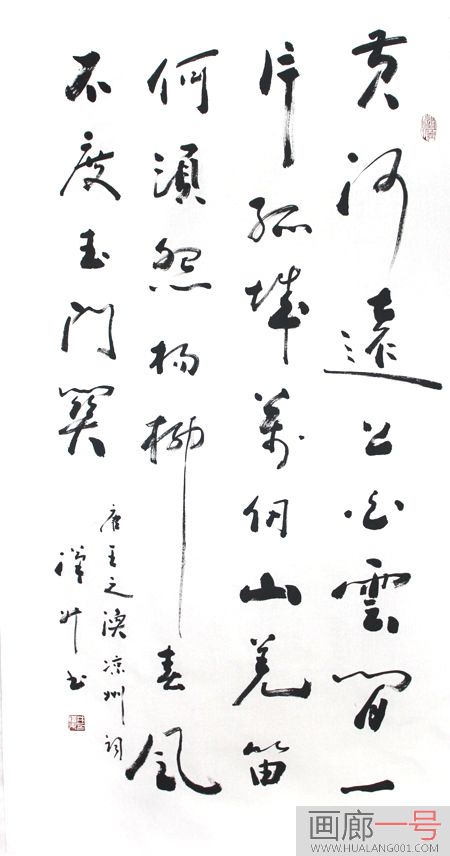 黄河遠上白雲間一
片孤城萬仞山羌笛
何須怨杨柳春風
不度玉門關
唐王之涣凉州詞
书
画廊一号
WWW.HUALANG001.COM